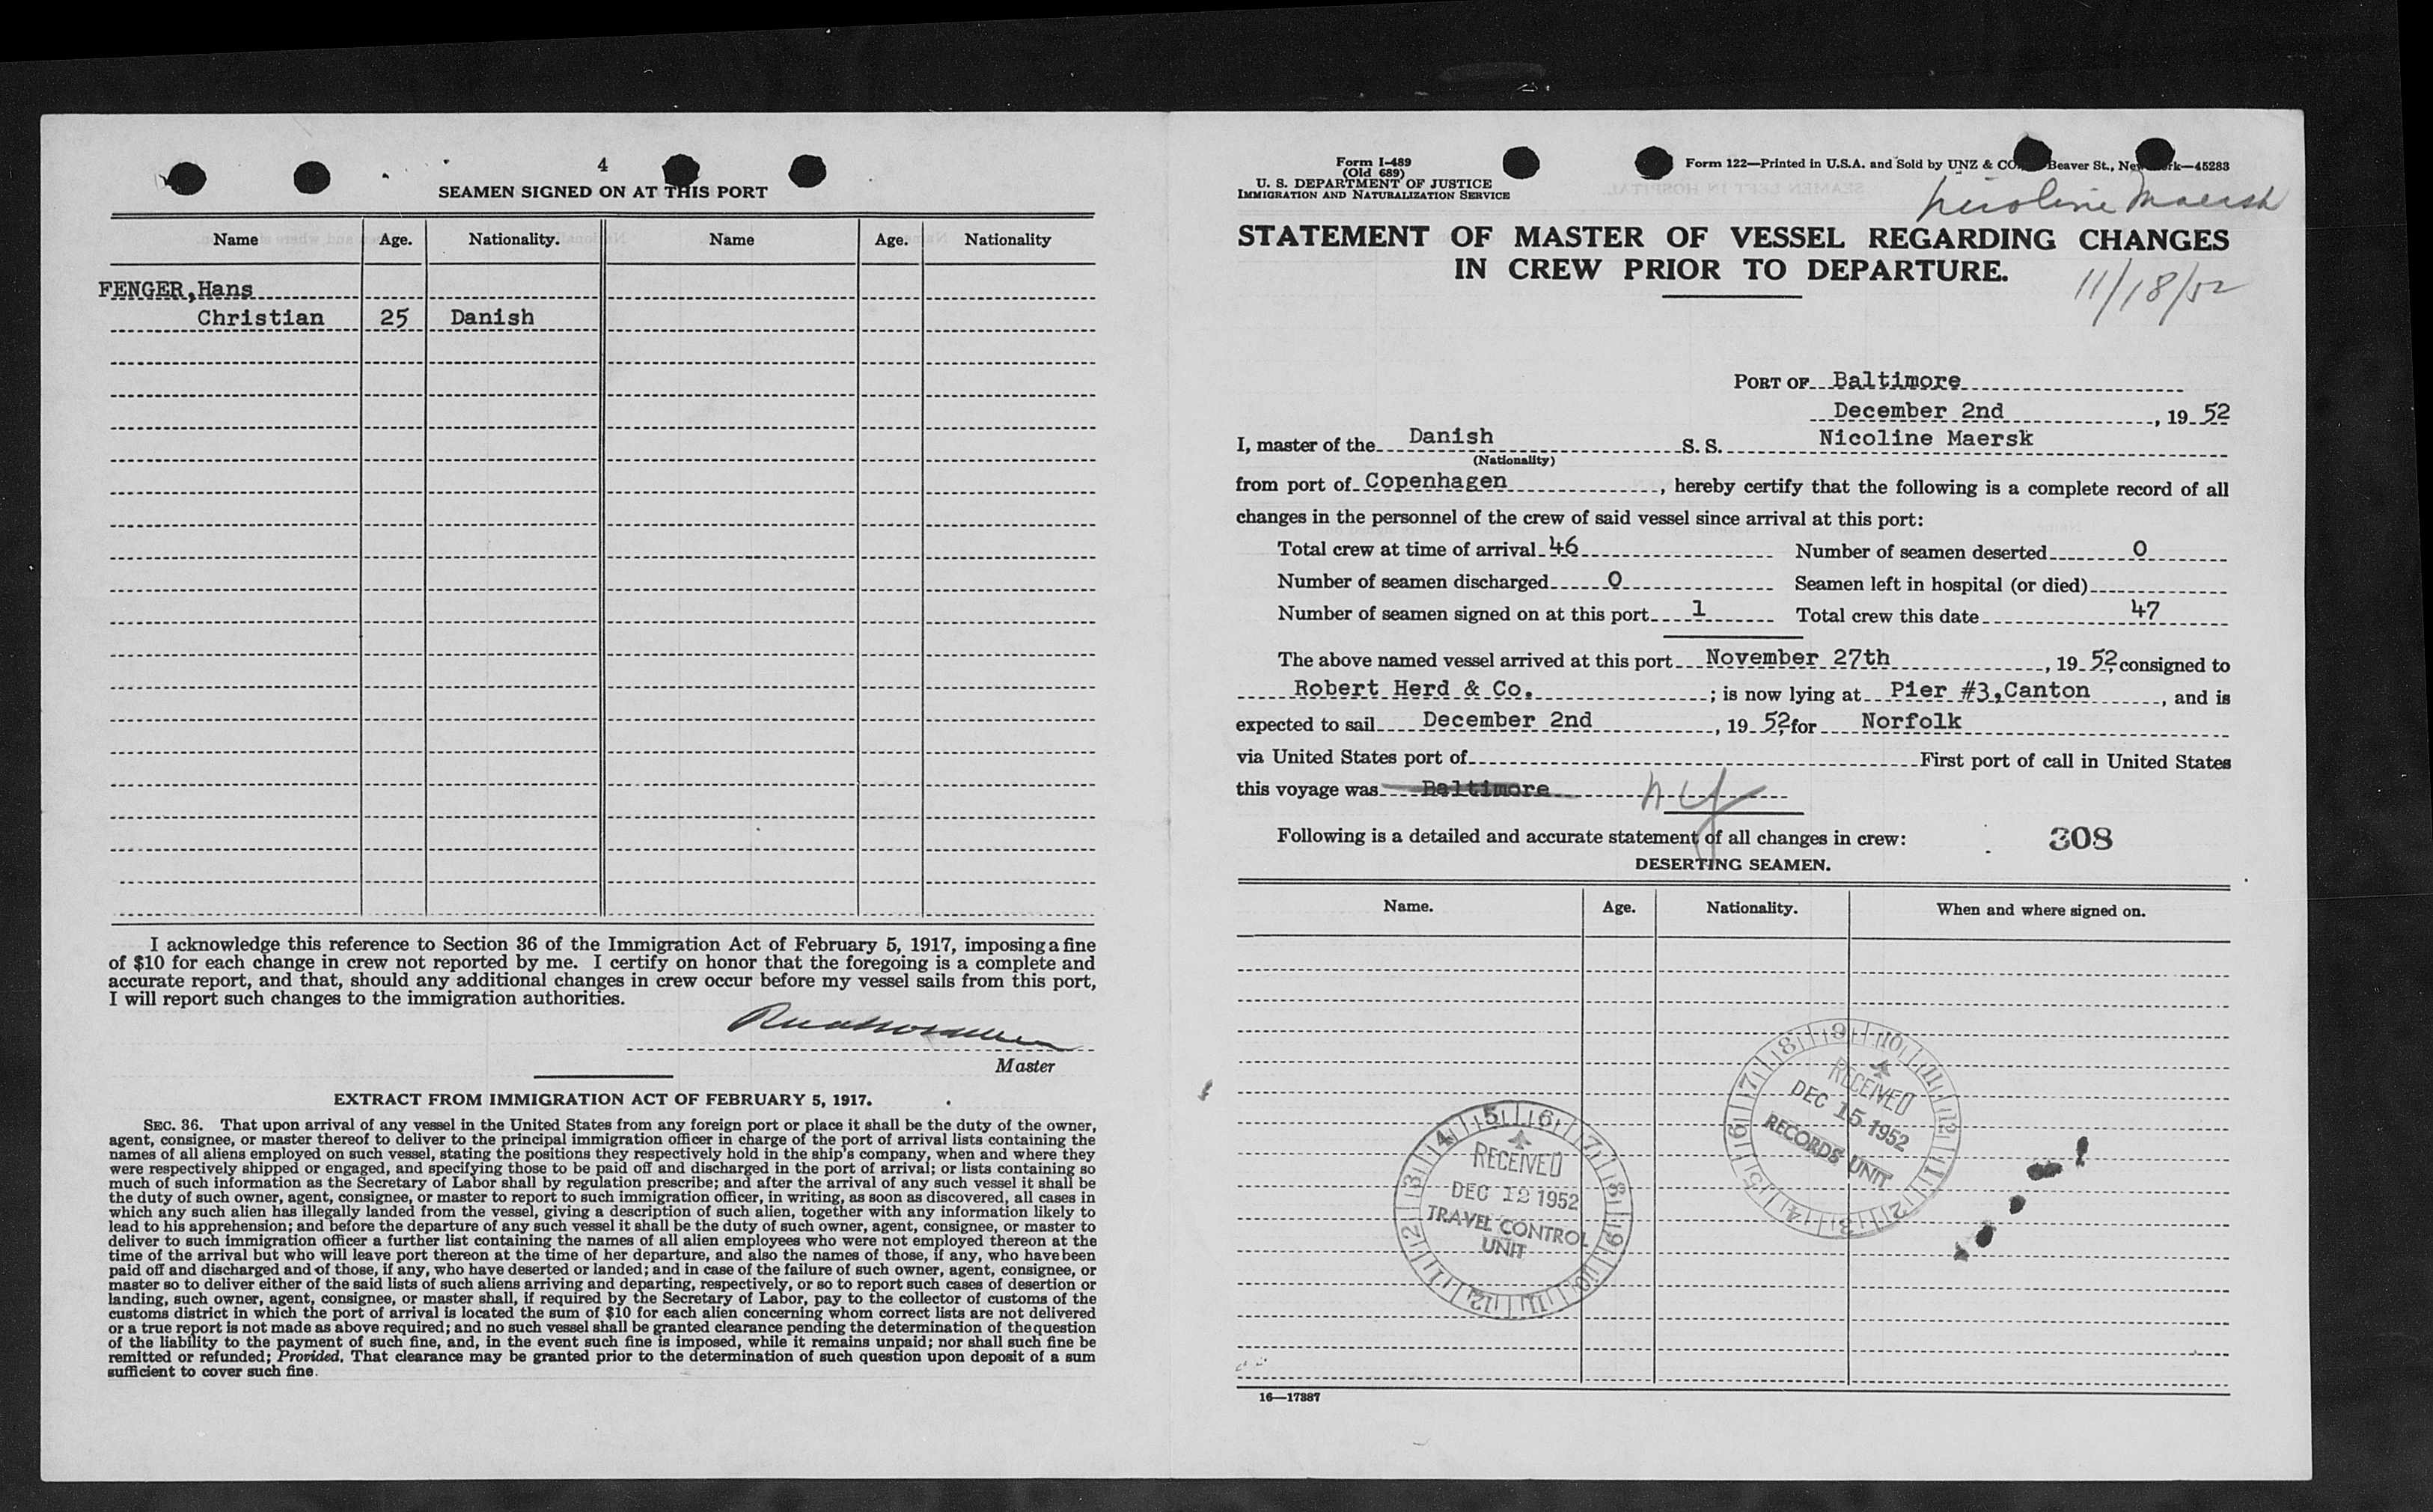 4
SEAMEN SIGNED ON AT THIS PORT
Name Age. Nationality. Name Age. Nationality
FENGER, Hans
Christian 25 Danish
I acknowledge this reference to Section 36 of the Immigration Act of February 5, 1917, imposing a fine
of $10 for each change in crew not reported by me. I certify on honor that the foregoing is a complete and
accurate report, and that, should any additional changes in crew occur before my vessel sails from this port,
I will report such changes to the immigration authorities.
Master
EXTRACT FROM IMMIGRATION ACT OF FEBRUARY 5, 1917.
SEC. 36. That upon arrival of any vessel in the United States from any foreign port or place it shall be the duty of the owner,
agent, consignee, or master thereof to deliver to the principal immigration officer in charge of the port of arrival lists containing the
names of all aliens employed on such vessel, stating the positions they respectively hold in the ship's company, when and where they
were respectively shipped or engaged, and specifying those to be paid off and discharged in the port of arrival; or lists containing so
much of such information as the Secretary of Labor shall by regulation prescribe; and after the arrival of any such vessel it shall be
the duty of such owner, agent, consignee, or master to report to such immigration officer, in writing, as soon as discovered, all cases in
which any such alien has illegally landed from the vessel, giving a description of such alien, together with any information likely to
lead to his apprehension; and before the departure of any such vessel it shall be the duty of such owner, agent, consignee, or master to
deliver to such immigration officer a further list containing the names of all alien employees who were not employed thereon at the
time of the arrival but who will leave port thereon at the time of her departure, and also the names of those, if any, who have been
paid off and discharged and of those, if any, who have deserted or landed; and in case of the failure of such owner, agent, consignee, or
master so to deliver either of the said lists of such aliens arriving and departing, respectively, or so to report such cases of desertion or
landing, such owner, agent, consignee, or master shall, if required by the Secretary of Labor, pay to the collector of customs of the
customs district in which the port of arrival is located the sum of $10 for each alien concerning whom correct lists are not delivered
or a true report is not made as above required; and no such vessel shall be granted clearance pending the determination of the question
of the liability to the payment of such fine, and, in the event such fine is imposed, while it remains unpaid; nor shall such fine be
remitted or refunded; Provided, That clearance may be granted prior to the determination of such question upon deposit of a sum
sufficient to cover such fine.
Form I-489
(Old 689)
U. S. DEPARTMENT OF JUSTICE
IMMIGRATION AND NATURALIZATION SERVICE
Form 122—Printed in U.S.A. and Sold by UNZ & CO. Beaver St., New York—45283
Nicoline Maersk
STATEMENT OF MASTER OF VESSEL REGARDING CHANGES
IN CREW PRIOR TO DEPARTURE.
11/18/52
PORT OF Baltimore
December 2nd, 19 52
I, master of the Danish S. S. Nicoline Maersk
(Nationality)
from port of Copenhagen, hereby certify that the following is a complete record of all
changes in the personnel of the crew of said vessel since arrival at this port:
Total crew at time of arrival 46 Number of seamen deserted 0
Number of seamen discharged 0 Seamen left in hospital (or died)
Number of seamen signed on at this port 1 Total crew this date 47
The above named vessel arrived at this port November 27th, 19 52, consigned to
Robert Herd & Co.; is now lying at Pier #3, Canton, and is
expected to sail December 2nd, 19 52, for Norfolk
via United States port of First port of call in United States
this voyage was Baltimore NY
Following is a detailed and accurate statement of all changes in crew: 308
DESERTING SEAMEN.
Name. Age. Nationality. When and where signed on.
RECEIVED
DEC 15 1952
RECORDS UNIT
RECEIVED
DEC 12 1952
TRAVEL CONTROL
UNIT
16—17387